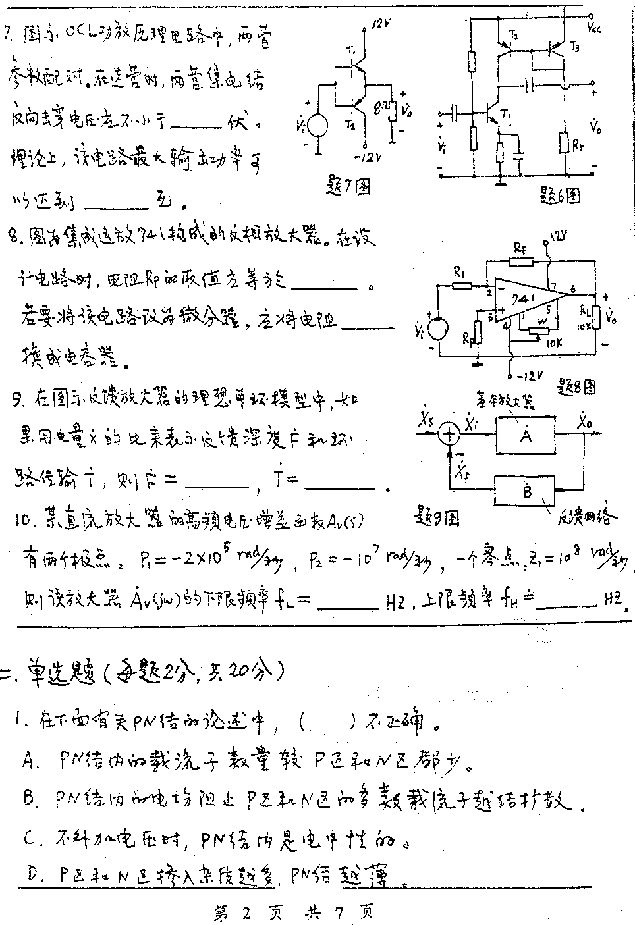 7. 图示OCL功放原理电路中，两管
参数配对。在选管时，两管集电结
反向击穿电压应不小于______伏。
理论上，该电路最大输出功率可
以达到______瓦。
12V
T1
T2
8Ω
V̇i
V̇o
-12V
题7图
T2
T3
Vcc
T1
V̇i
V̇o
Rr
题6图
8. 图为集成运放741构成的反相放大器。在设
计电路时，电阻Rp的取值应等于______。
若要将该电路改为微分器，应将电阻______
换成电容器。
12V
RF
R1
741
2
3
4
1
5
6
7
V̇i
Rp
W
10K
RL
10K
V̇o
-12V
题8图
9. 在图示反馈放大器的理想单环模型中，如
果用电量Ẋ的比来表示反馈深度Ḟ和环
路传输Ṫ，则Ḟ=______，Ṫ=______.
基本放大器
Ẋs
Ẋi
Ȧ
Ẋo
Ẋf
Ḃ
题9图
反馈网络
10. 某直流放大器的高频电压增益函数Av(s)
有两个极点：P1=-2×10⁵ rad/秒，P2=-10⁷ rad/秒，一个零点：Z1=10⁸ rad/秒，
则该放大器Ȧv(jω)的下限频率fL=______HZ，上限频率fH≐______HZ。
二、单选题（每题2分，共20分）
1. 在下面有关PN结的论述中，（　　）不正确。
A. PN结内的载流子数量较P区和N区都少。
B. PN结内的电场阻止P区和N区的多数载流子越结扩散.
C. 不外加电压时，PN结内是电中性的。
D. P区和N区掺入杂质越多，PN结越薄。
第 2 页 共 7 页